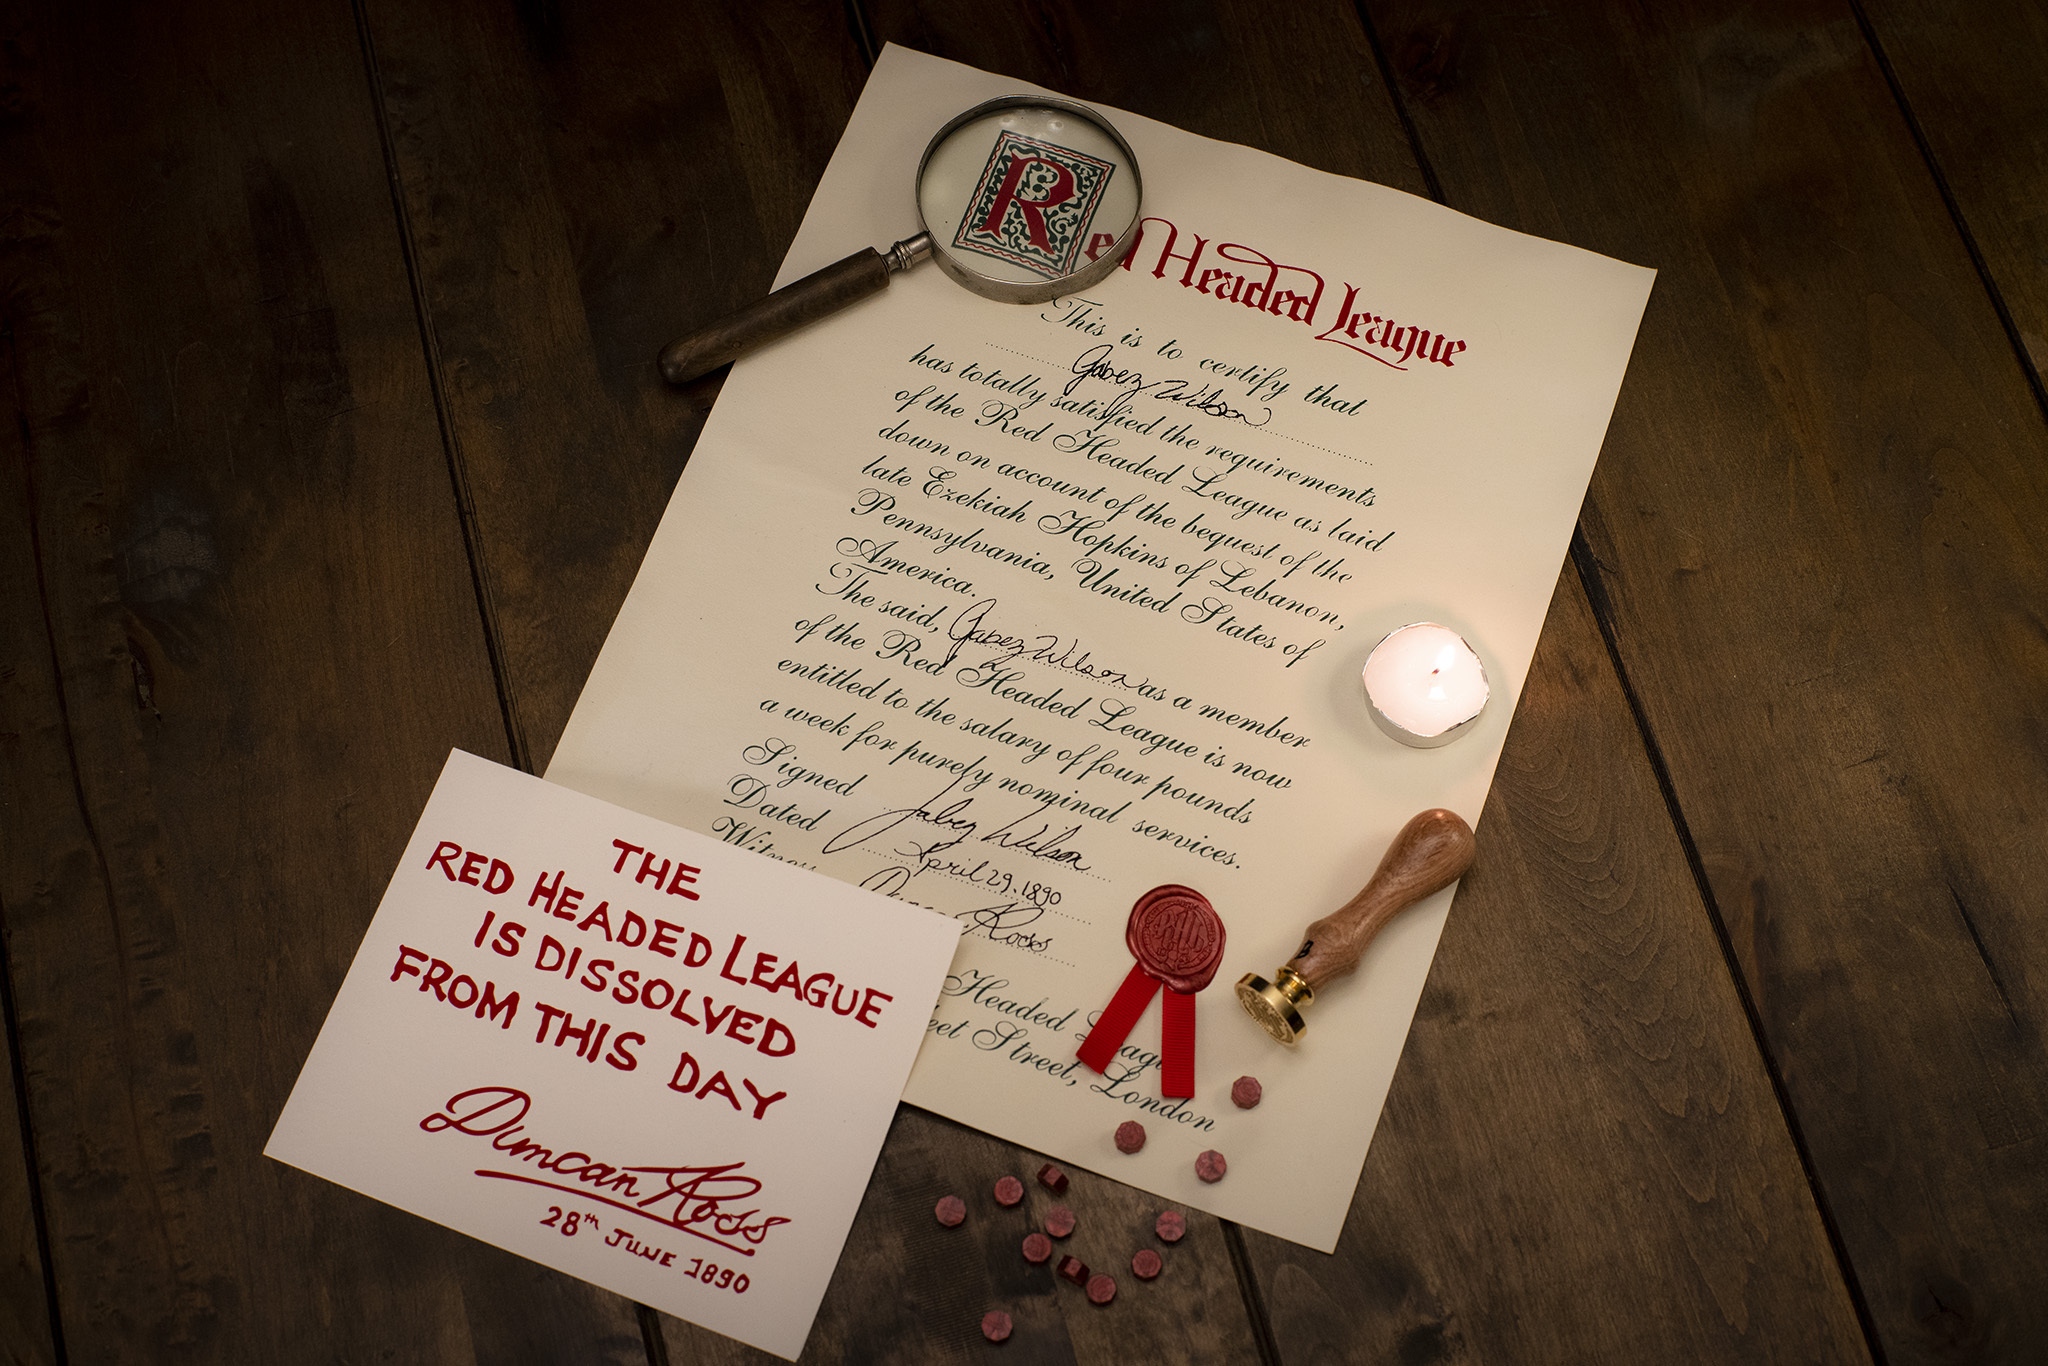 Red Headed League
This is to certify that
Jabez Wilson
has totally satisfied the requirements
of the Red Headed League as laid
down on account of the bequest of the
late Ezekiah Hopkins of Lebanon,
Pennsylvania, United States of
America.
The said, Jabez Wilson as a member
of the Red Headed League is now
entitled to the salary of four pounds
a week for purely nominal services.
Signed Jabez Wilson
Dated April 29, 1890
Witness Duncan Ross
Headed League
Street, London
THE
RED HEADED LEAGUE
IS DISSOLVED
FROM THIS DAY
Duncan Ross
28th JUNE 1890